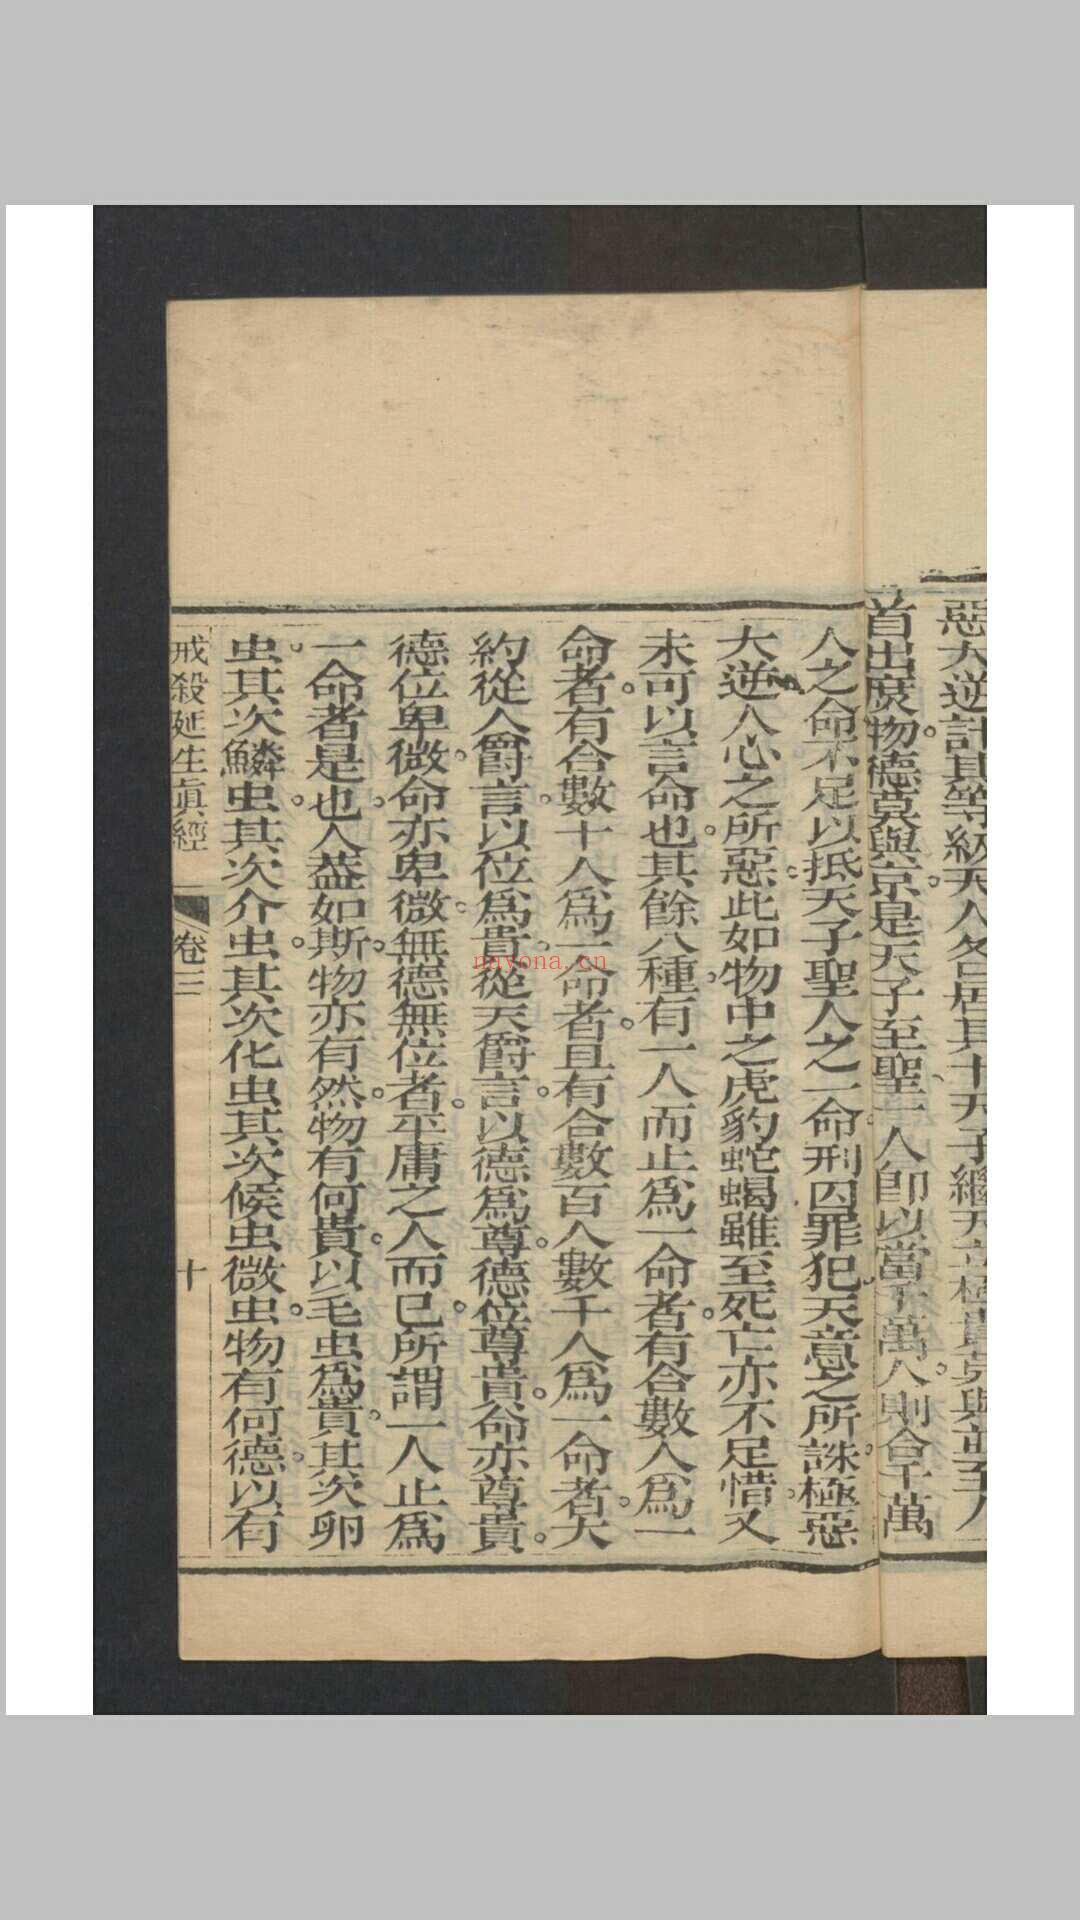 惡大逆計其等級天人各居其十天子繼天立極貴莫與並至人
首出庶物德莫與京是天子至聖一人卽以當千萬人則合千萬
人之命不足以抵天子聖人之一命刑囚罪犯天意之所誅極惡
大逆人心之所惡此如物中之虎豹蛇蝎雖至死亡亦不足惜又
未可以言命也其餘八種有一人而止爲一命者有合數人爲一
命者有合數十人爲一命者且有合數百人數千人爲一命者大
約從人爵言以位爲貴從天爵言以德爲尊德位尊貴命亦尊貴
德位卑微命亦卑微無德無位者平庸之人而已所謂一人止爲
一命者是也人葢如斯物亦有然物有何貴以毛虫爲貴其次卵
虫其次鱗虫其次介虫其次化虫其次候虫微虫物有何德以有
戒殺延生眞經 卷三 十
nayona.cn